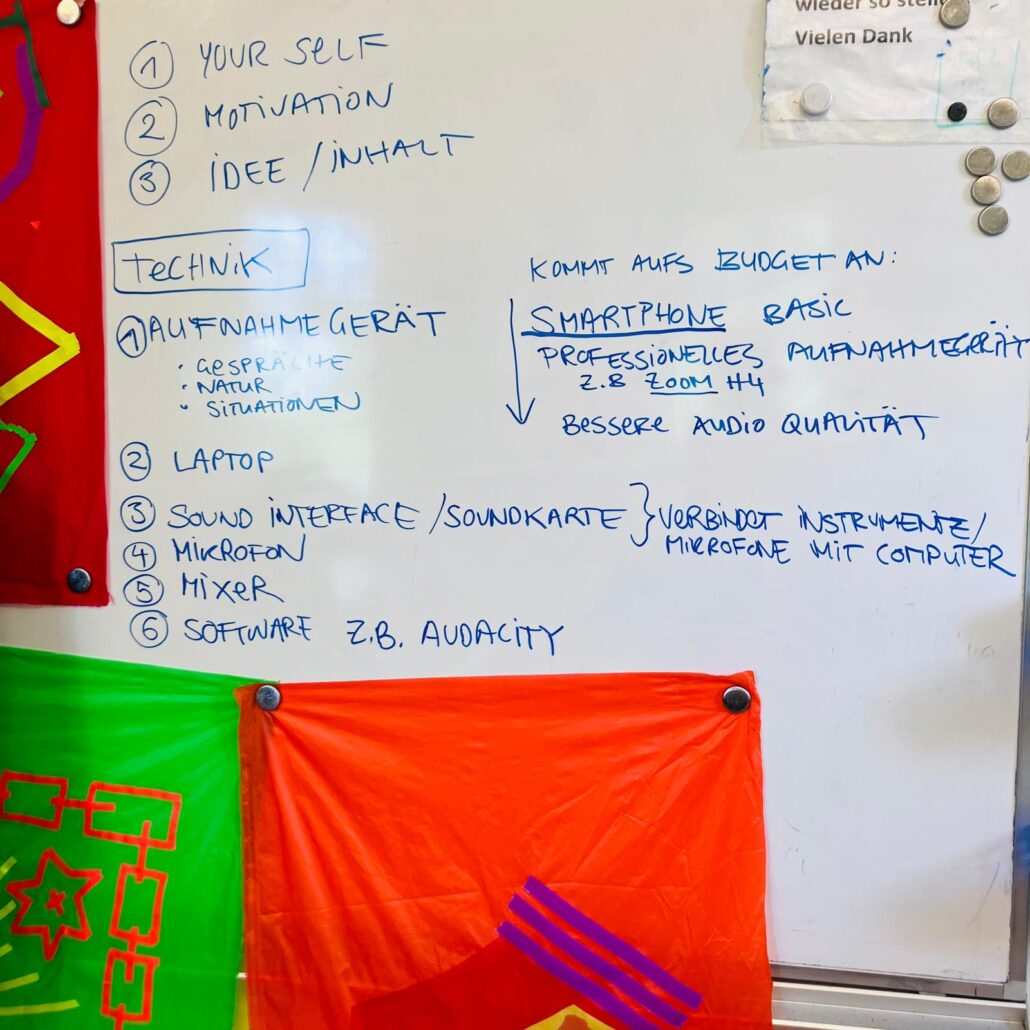 wieder so
Vielen Dank
① YOUR SELF
② MOTIVATION
③ IDEE / INHALT
TECHNIK
① AUFNAHMEGERÄT
· GESPRÄCHE
· NATUR
· SITUATIONEN
② LAPTOP
③ SOUND INTERFACE / SOUNDKARTE } VERBINDET INSTRUMENTE/
MIKROFONE MIT COMPUTER
④ MIKROFON
⑤ MIXER
⑥ SOFTWARE Z.B. AUDACITY
KOMMT AUFS BUDGET AN:
SMARTPHONE BASIC
PROFESSIONELLES AUFNAHMEGERÄT
Z.B ZOOM H4
BESSERE AUDIO QUALITÄT